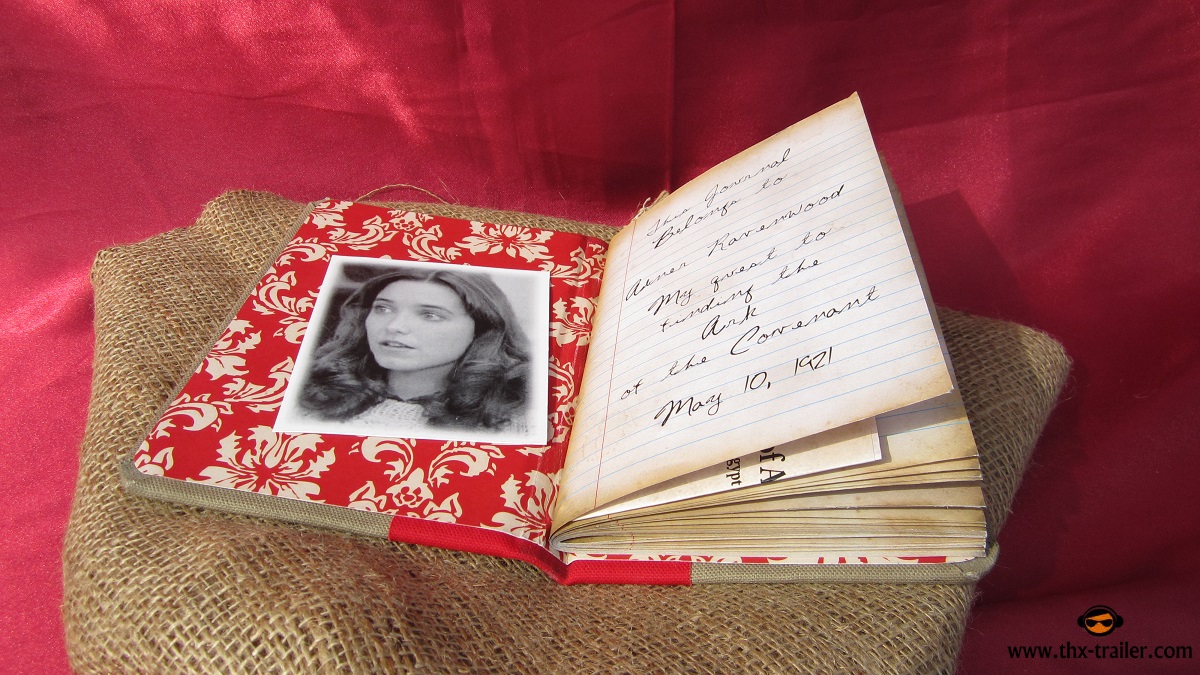 This Journal
Belongs to
Abner Ravenwood
My quest to
finding the
Ark
of the Covenant
May 10, 1921
of A
gypt
www.thx-trailer.com